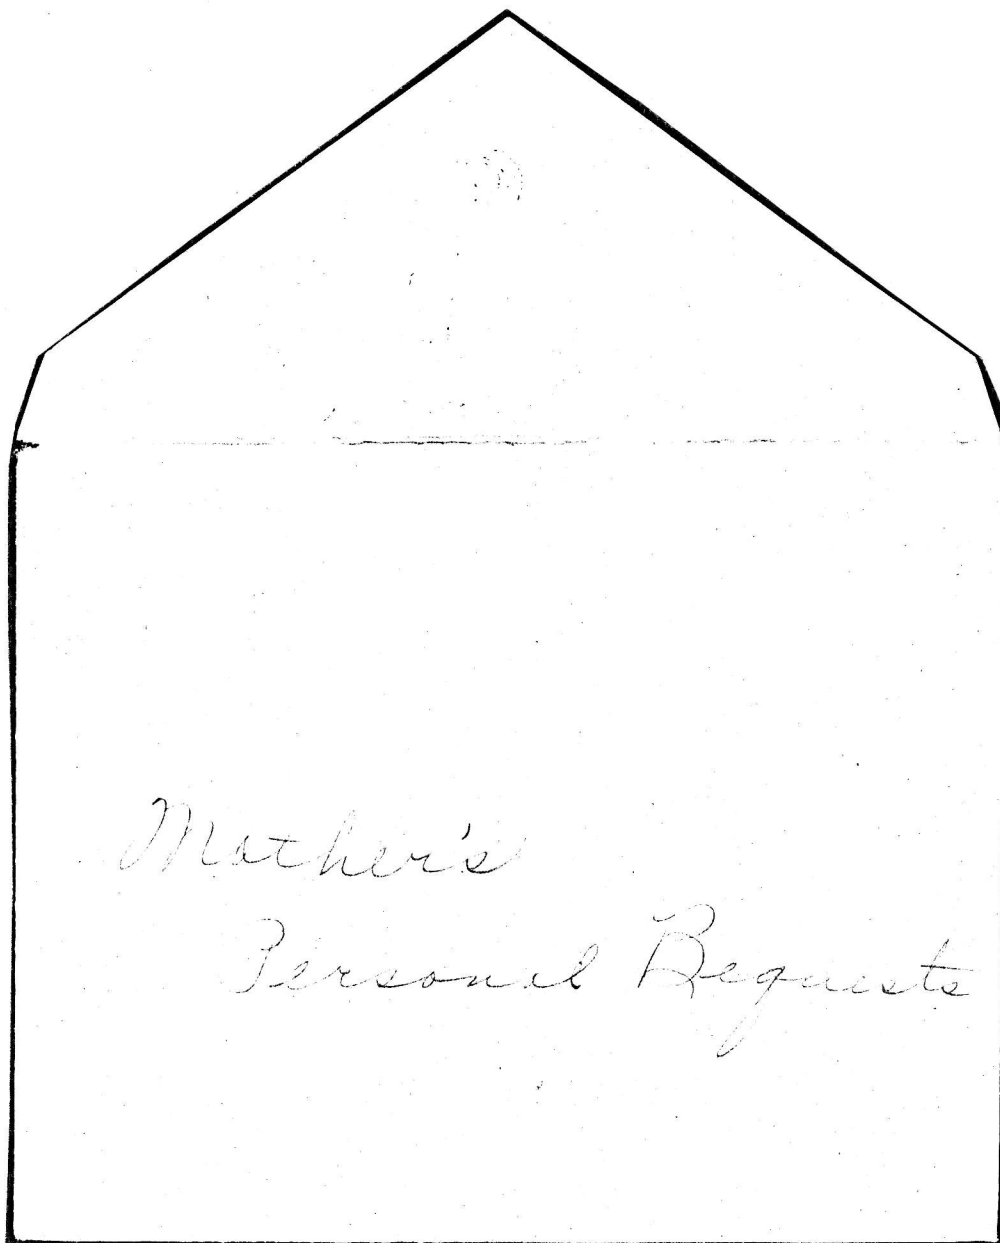 Mother's
Personal Bequests